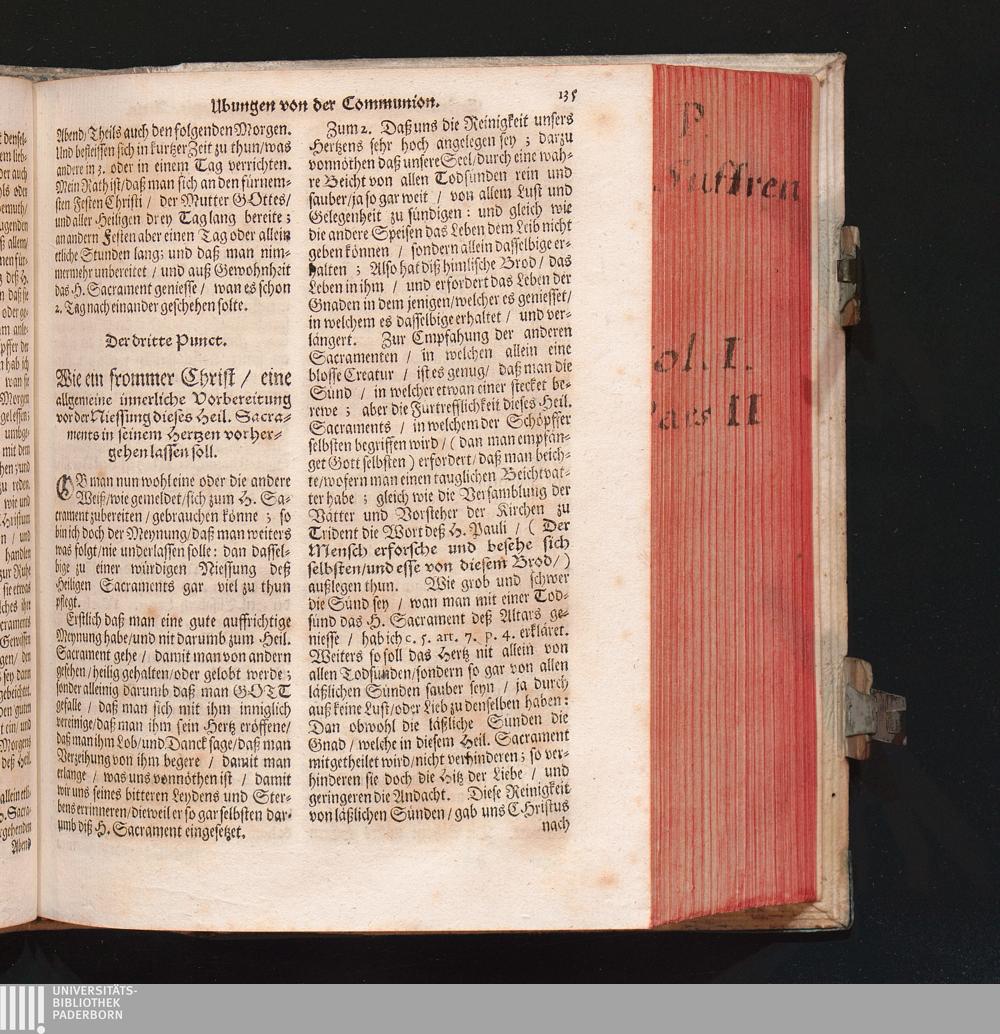 Ubungen von der Communion.
135
Abend/Theils auch den folgenden Morgen.
Und befleissen sich in kurtzer Zeit zu thun/was
andere in 3. oder in einem Tag verrichten.
Mein Rath ist/daß man sich an den fürnem-
sten Festen Christi / der Mutter GOttes/
und aller Heiligen drey Tag lang bereite;
an andern Festen aber einen Tag oder allein
etliche Stunden lang; und daß man nim-
mermehr unbereitet / und auß Gewohnheit
das H. Sacrament geniesse / wan es schon
2. Tag nach einander geschehen solte.
Der dritte Punct.
Wie ein frommer Christ / eine
allgemeine innerliche Vorbereitung
vor der Niessung dieses Heil. Sacra-
ments in seinem Hertzen vorher-
gehen lassen soll.
OB man nun wohl eine oder die andere
Weiß/wie gemeldet/sich zum H. Sa-
crament zubereiten / gebrauchen könne ; so
bin ich doch der Meynung/daß man weiters
was folgt/nie underlassen solle : dan dassel-
bige zu einer würdigen Niessung deß
Heiligen Sacraments gar viel zu thun
pflegt.
Erstlich daß man eine gute auffrichtige
Meynung habe/und nit darumb zum Heil.
Sacrament gehe / damit man von andern
gesehen/heilig gehalten/oder gelobt werde ;
sonder alleinig darumb daß man GOTT
gefalle / daß man sich mit ihm inniglich
vereinige/daß man ihm sein Hertz eröffene/
daß man ihm Lob/und Danck sage/daß man
Verzeihung von ihm begere / damit man
erlange / was uns vonnöthen ist / damit
wir uns seines bitteren Leydens und Ster-
bens erinneren/dieweil er so gar selbsten dar-
umb diß H. Sacrament eingesetzet.
Zum 2. Daß uns die Reinigkeit unsers
Hertzens sehr hoch angelegen sey ; darzu
vonnöthen daß unsere Seel/durch eine wah-
re Beicht von allen Todsünden rein und
sauber/ja so gar weit / von allem Lust und
Gelegenheit zu sündigen : und gleich wie
die andere Speisen das Leben dem Leib nicht
geben können / sondern allein dasselbige er-
halten ; Also hat diß himlische Brod / das
Leben in ihm / und erfordert das Leben der
Gnaden in dem jenigen/welcher es geniesset/
in welchem es dasselbige erhaltet / und ver-
längert. Zur Empfahung der anderen
Sacramenten / in welchen allein eine
blosse Creatur / ist es genug / daß man die
Sünd / in welcher etwan einer stecket be-
rewe ; aber die Fürtrefflichkeit dieses Heil.
Sacraments / in welchem der Schöpffer
selbsten begriffen wird / ( dan man empfän-
get Gott selbsten ) erfordert / daß man beich-
te/wofern man einen tauglichen Beichtvat-
ter habe ; gleich wie die Versamblung der
Vätter und Vorsteher der Kirchen zu
Trident die Wort deß H. Pauli / ( Der
Mensch erforsche und besehe sich
selbsten/und esse von diesem Brod/)
außlegen thun. Wie grob und schwer
die Sünd sey / wan man mit einer Tod-
sünd das H. Sacrament deß Altars ge-
niesse / hab ich c. 5. art. 7. p. 4. erkläret.
Weiters so soll das Hertz nit allein von
allen Todsünden/sondern so gar von allen
läßlichen Sünden sauber seyn / ja durch
auß keine Lust/oder Lieb zu denselben haben:
Dan obwohl die läßliche Sünden die
Gnad / welche in diesem Heil. Sacrament
mitgetheilet wird/nicht verhinderen ; so ver-
hinderen sie doch die Hitz der Liebe / und
geringeren die Andacht. Diese Reinigkeit
von läßlichen Sünden / gab uns CHristus
nach
P.
Suffren
ol. I.
Pars II
UNIVERSITÄTS-
BIBLIOTHEK
PADERBORN